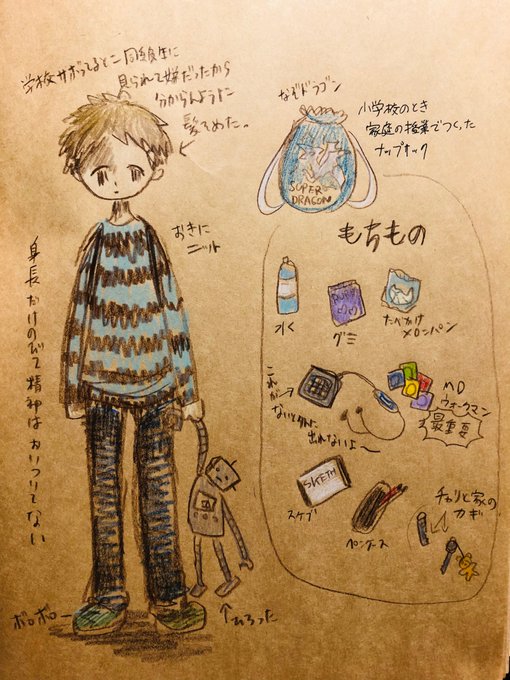 学校サボってるとこ同級生に
見られて嫌だったから
分からんように
髪そめた。
おきに
ニット
身長だけのびて精神はおいついてない
ボロボロ
↑ひろった
なぞドラゴン
SUPER
DRAGON
小学校のとき
家庭の授業でつくった
ナップサック
もちもの
水
グミ
たべかけ
メロンパン
これが→
ないと外に
出れないよ〜
MD
ウォークマン
最重要
SKETH
スケブ
ペンケース
チャリと家の
カギ